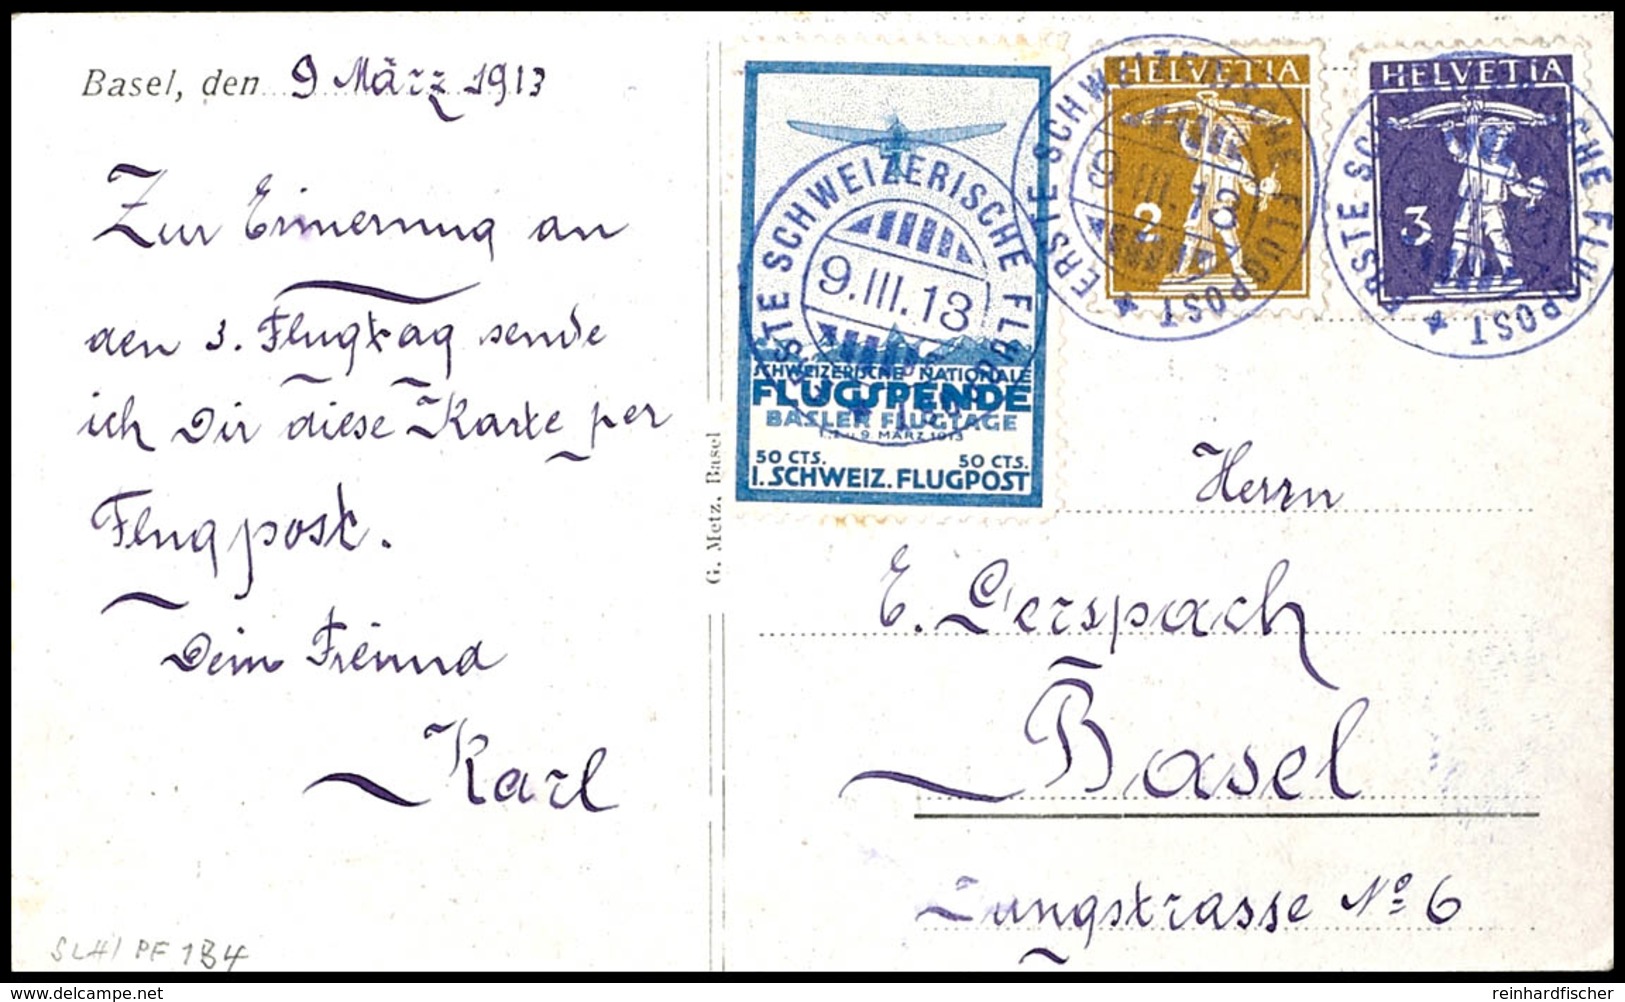 Basel, den 9 März 1913
Zur Erinnerung an
den 3. Flugtag sende
ich Dir diese Karte per
Flugpost.
Dein Freund
Karl
SLH / PF 1B4
G. Metz, Basel
ERSTE SCHWEIZERISCHE FLUGPOST
9.III.13
SCHWEIZERISCHE NATIONALE
FLUGSPENDE
BASLER FLUGTAGE
9. MÄRZ 1913
50 CTS. 50 CTS.
I. SCHWEIZ. FLUGPOST
HELVETIA
2
ERSTE SCHWEIZERISCHE FLUGPOST
9.III.13
HELVETIA
3
Herrn
E. Gerspach
Basel
Jungstrasse No 6
www.delcampe.net
reinhardfischer